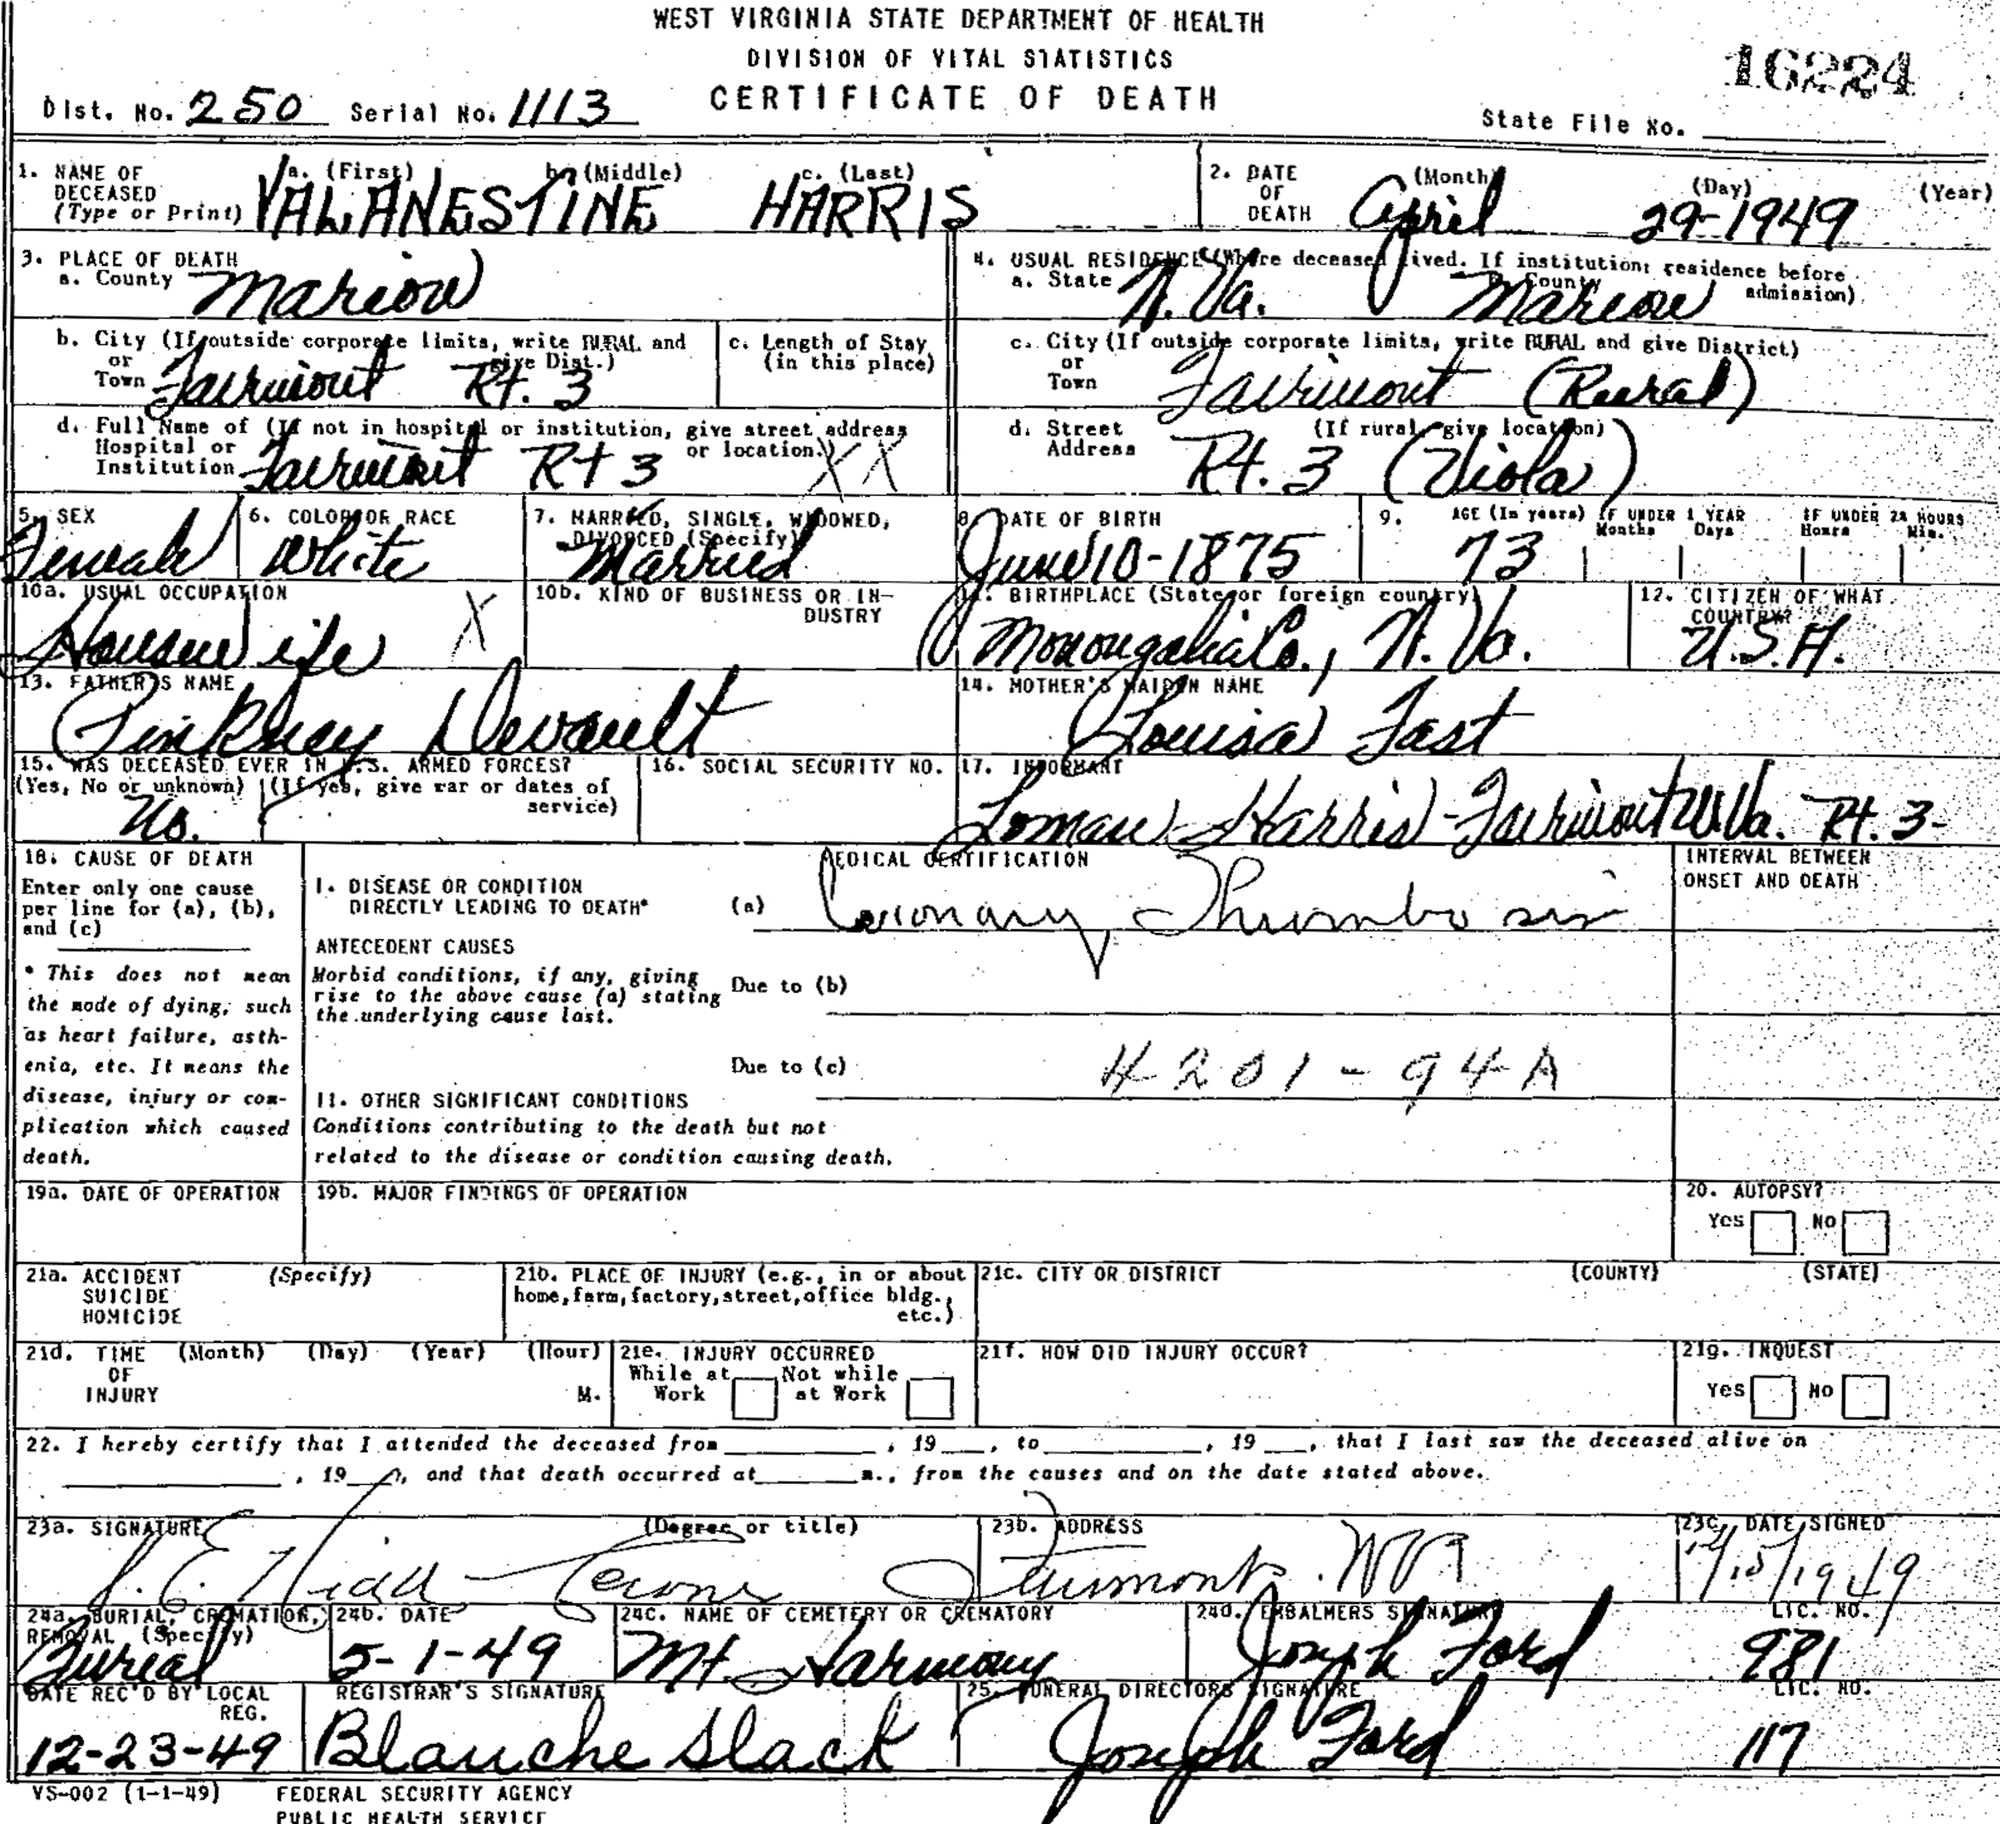 WEST VIRGINIA STATE DEPARTMENT OF HEALTH
DIVISION OF VITAL STATISTICS
CERTIFICATE OF DEATH
16224
Dist. No. 250 Serial No. 1113
State File No.
1. NAME OF DECEASED (Type or Print) a. (First) b. (Middle) c. (Last)
VALANESTINE HARRIS
2. DATE OF DEATH (Month) (Day) (Year)
April 29-1949
3. PLACE OF DEATH
a. County Marion
4. USUAL RESIDENCE (Where deceased lived. If institution: residence before admission)
a. State W. Va. b. County Marion
b. City (If outside corporate limits, write RURAL and give Dist.)
or Town Fairmont Rt. 3
c. Length of Stay (in this place)
c. City (If outside corporate limits, write RURAL and give District)
or Town Fairmont (Rural)
d. Full Name of Hospital or Institution (If not in hospital or institution, give street address or location.)
Fairmont Rt 3 XX
d. Street Address (If rural, give location)
Rt. 3 (Viola)
5. SEX
Female
6. COLOR OR RACE
White
7. MARRIED, SINGLE, WIDOWED, DIVORCED (Specify)
Married
8. DATE OF BIRTH
June 10-1875
9. AGE (In years) IF UNDER 1 YEAR Months Days IF UNDER 24 HOURS Hours Min.
73
10a. USUAL OCCUPATION
Housewife X
10b. KIND OF BUSINESS OR INDUSTRY
11. BIRTHPLACE (State or foreign country)
Monongalia Co., W. Va.
12. CITIZEN OF WHAT COUNTRY?
U.S.A.
13. FATHER'S NAME
Pinkney Devault
14. MOTHER'S MAIDEN NAME
Louisa Fast
15. WAS DECEASED EVER IN U.S. ARMED FORCES?
(Yes, No or unknown) (If yes, give war or dates of service)
No.
16. SOCIAL SECURITY NO.
17. INFORMANT
Loman Harris-Fairmont W.Va. Rt. 3-
18. CAUSE OF DEATH
Enter only one cause
per line for (a), (b),
and (c)
* This does not mean
the mode of dying, such
as heart failure, asth-
enia, etc. It means the
disease, injury or com-
plication which caused
death.
MEDICAL CERTIFICATION
INTERVAL BETWEEN ONSET AND DEATH
I. DISEASE OR CONDITION
DIRECTLY LEADING TO DEATH* (a) Coronary Thrombosis
ANTECEDENT CAUSES
Morbid conditions, if any, giving
rise to the above cause (a) stating
the underlying cause last.
Due to (b)
Due to (c) 4201-94A
II. OTHER SIGNIFICANT CONDITIONS
Conditions contributing to the death but not
related to the disease or condition causing death.
19a. DATE OF OPERATION
19b. MAJOR FINDINGS OF OPERATION
20. AUTOPSY?
Yes No
21a. ACCIDENT SUICIDE HOMICIDE (Specify)
21b. PLACE OF INJURY (e.g., in or about
home, farm, factory, street, office bldg., etc.)
21c. CITY OR DISTRICT (COUNTY) (STATE)
21d. TIME OF INJURY (Month) (Day) (Year) (Hour) M.
21e. INJURY OCCURRED
While at Work Not while at Work
21f. HOW DID INJURY OCCUR?
21g. INQUEST
Yes No
22. I hereby certify that I attended the deceased from , 19 , to , 19 , that I last saw the deceased alive on
, 19 , and that death occurred at m., from the causes and on the date stated above.
23a. SIGNATURE (Degree or title)
23b. ADDRESS
Fairmont WVA
23c. DATE SIGNED
24a. BURIAL, CREMATION, REMOVAL (Specify)
Burial
24b. DATE
5-1-49
24c. NAME OF CEMETERY OR CREMATORY
Mt. Harmony
24d. EMBALMERS SIGNATURE LIC. NO.
Joseph Ford 981
DATE REC'D BY LOCAL REG.
12-23-49
REGISTRAR'S SIGNATURE
Blanche Slack
25. FUNERAL DIRECTORS SIGNATURE LIC. NO.
Joseph Ford 117
VS-002 (1-1-49) FEDERAL SECURITY AGENCY
PUBLIC HEALTH SERVICE